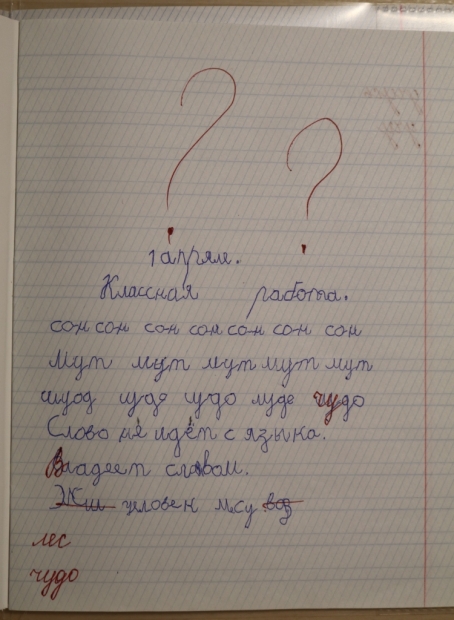 ? ?
1 апряле.
Классная работа.
сон сон сон сон сон сон сон
мут мут мут мут мут
шуод щуде цудо луде чудо
Слово не идёт с языка.
Владеет словом.
Жи человек лесу
лес
чудо